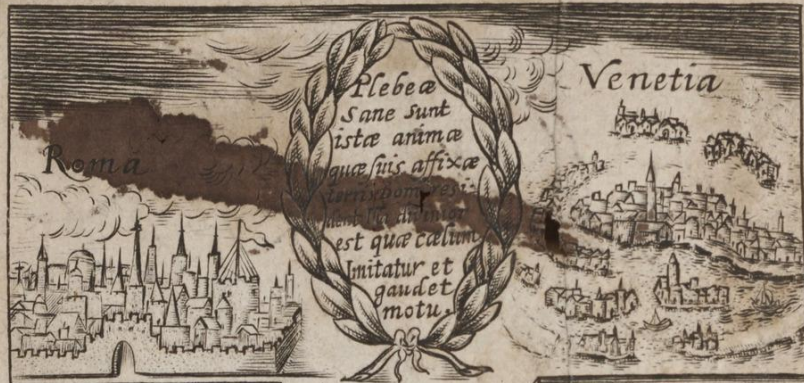 Roma
Plebeæ
Sane sunt
istæ animæ
quæ suis affixæ
terris Domi resi-
dent
est quæ cælum
Imitatur et
gaudet
motu.
Venetia